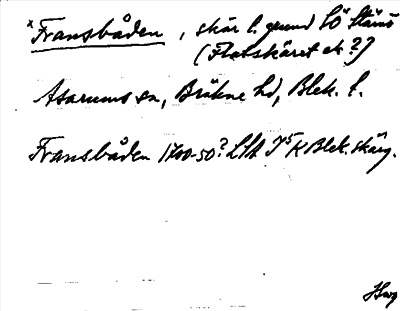 *Fransbåden, skär l. grund SÖ Stärnö
(Flatskäret ek?)
Asarums sn, Bräkne hd, Blek. l.
Fransbåden 1700-50? LSA J⁵ K Blek. skärg.